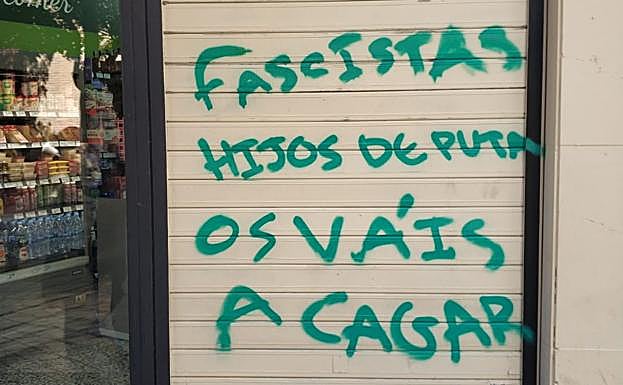 comer
FASCISTAS
HIJOS DE PUTA
OS VÁIS
A CAGAR